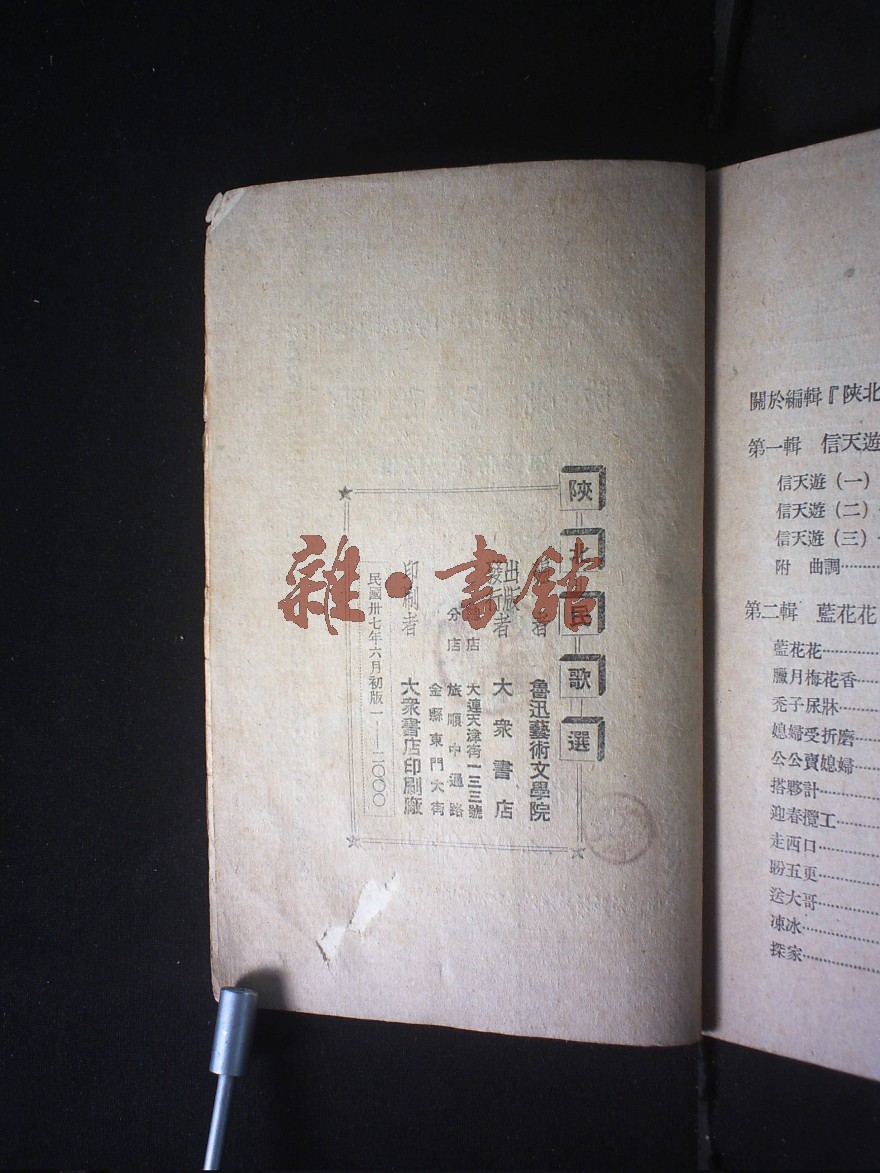 陝北民歌選
者 魯迅藝術文學院
出版者
發行 大衆書店
店 大連天津街一三三號
分店 旅順中通路
金縣東門大街
印制者 大衆書店印刷廠
民國卅七年六月初版一——二〇〇〇
雜·書館
關於編輯『陝北
第一輯 信天遊
信天遊（一）
信天遊（二）
信天遊（三）
附 曲調
第二輯 藍花花
藍花花
臘月梅花香
禿子尿牀
媳婦受折磨
公公賣媳婦
搭夥計
迎春攬工
走西口
盼五更
送大哥
凍冰
探家